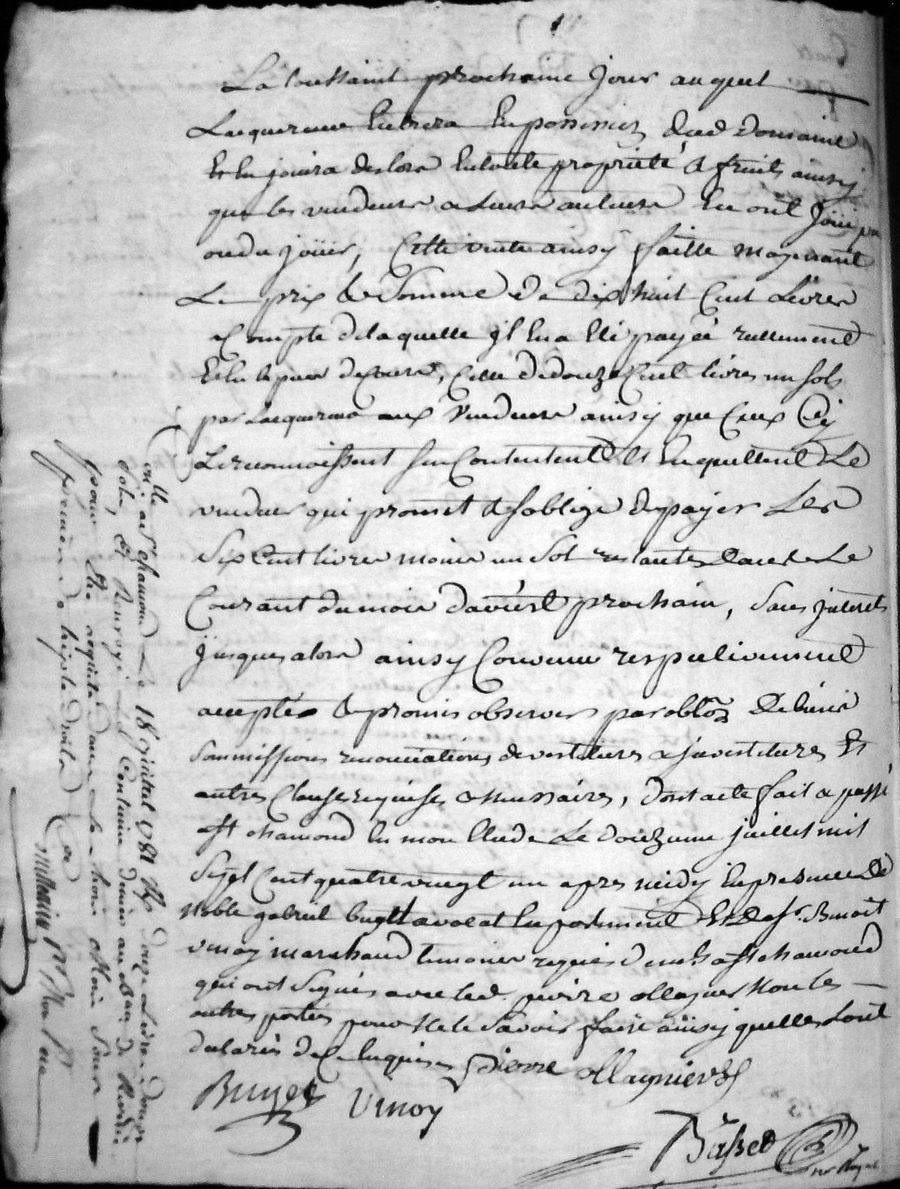 La toussaint prochaine jour auquel
Lacquereur Entrera En possession dud Domaine
Et En jouira des lors En toute propriété & fruits ainsy
que les vendeurs & Leurs auteurs En ont Joüi pu
ou du joüir, Cette vente ainsy faitte moyenant
Le prix & Somme de dix huit Cent Livres
a Compte de laquelle jl En a Eté payée réellement
Celle de douze Cent livres un sols
par Lacquereur aux Vendeurs ainsy que Ceux Cy
Le reconnoissent sen Contentent Et En quittent Le
vendeur qui promet & soblige de payer Les
Six Cent livres moins un Sol restantes dans Le
Courant du mois davril prochain, Sans jnterets
jusques alors ainsy Convenu respectivement
accepté & promis observer par oblon de biens
Soumissions renonciations devestitures & jnvestitures Et
autres Clauses requises & necessaires, dont acte fait & passé
a St chamond En mon Etude Le douzieme juillet mil
Sept Cent quatre vingt un apres midy En presence de
Noble gabriel buyet avocat En parlement Et de sr. Benoit
vinoy marchand temoins requis demts a St chamond
qui ont Signés avec led pierre ollagnier Non les
autres parties pour Ne le Savoir faire ainsy quelles Lont
declarés de Ce Enquises Pierre ollagnier
Buyet Vinoy
Basset
nore Royal
collé
a St chamond Le 18 juillet 1781 Rç douze Livres douze
sols, Et Renvoyé Le Contenu dernier au bureau de
pour Etre acquitté dans Le trois Mois Sous
peine du triple droit